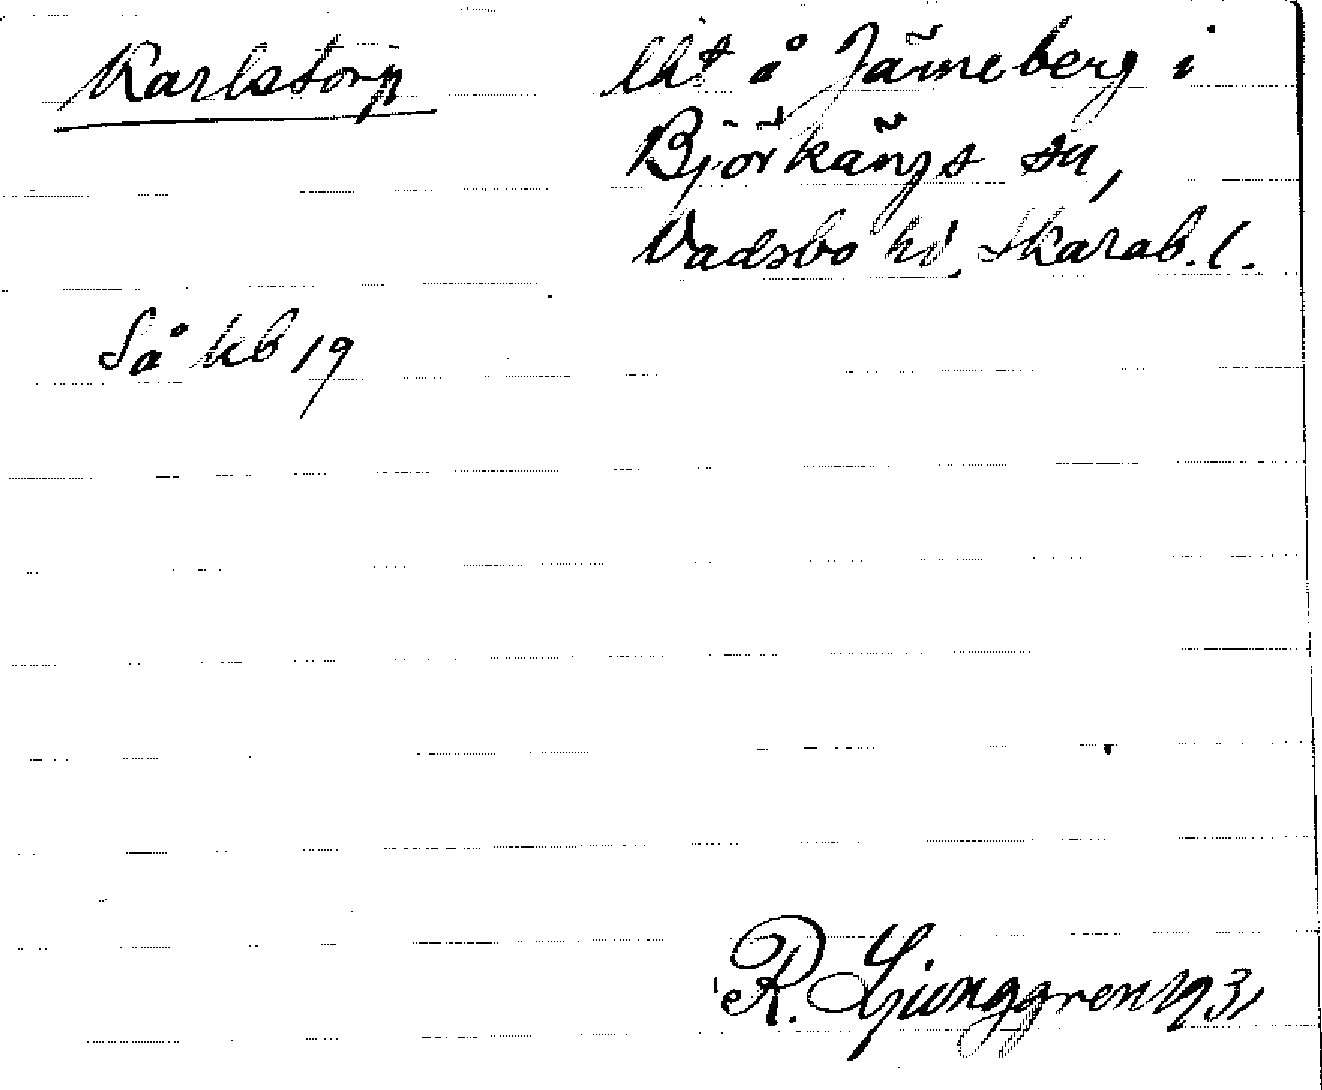 Karlstorp
lht å Järneberg i
Björkängs sn,
Vadsbo hd, Skarab. l.
Så kb 19
R. Ljunggren 1931